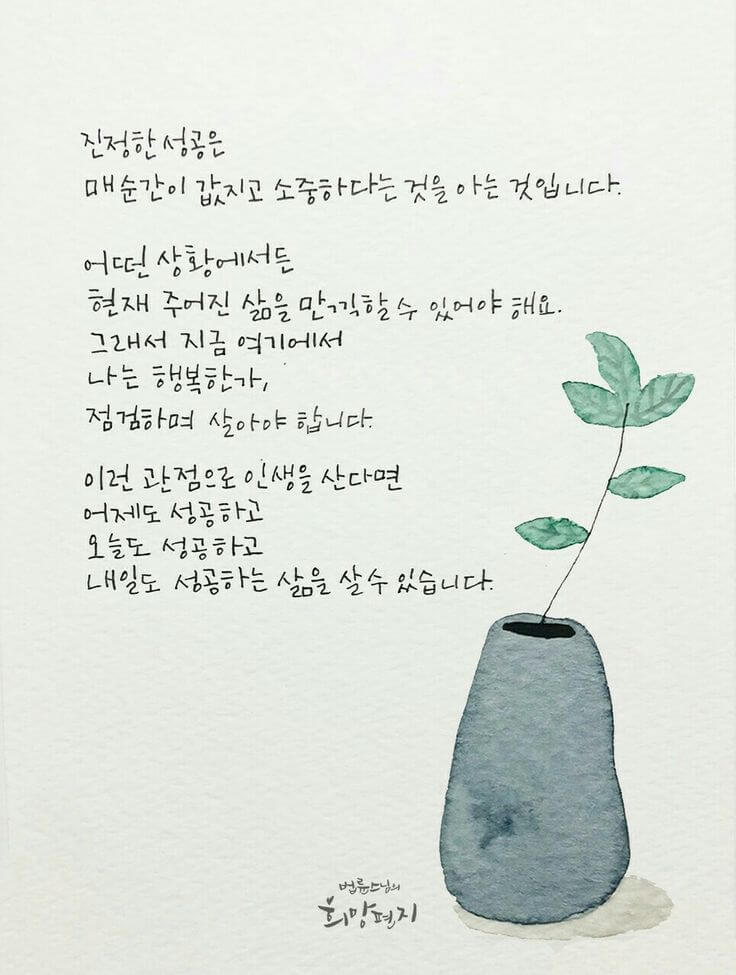 진정한 성공은
매순간이 값지고 소중하다는 것을 아는 것입니다.
어떤 상황에서든
현재 주어진 삶을 만끽할 수 있어야 해요.
그래서 지금 여기에서
나는 행복한가,
점검하며 살아야 합니다.
이런 관점으로 인생을 산다면
어제도 성공하고
오늘도 성공하고
내일도 성공하는 삶을 살 수 있습니다.
법륜스님의
희망편지